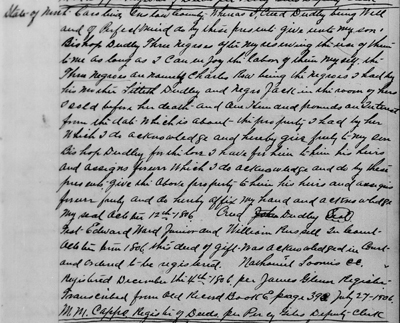 State of North Carolina, Onslow County. Whereas I Creed Dudley being Well
and of Perfect Mind do by these presents give unto my son
Bishop Dudley Three Negroes after my reserving the use of them
to me as long as I Can enjoy the labor of them myself. the
Three Negroes are namely Charles being the Negroes I had by
his Mother Dudley and Negro Jack in the room of
I sold before her death and One Hundred pounds on Interest
from the date Which is about the property I had by her
Which I do acknowledge and hereby give freely to my son
Bishop Dudley for the love I have for him to him his heirs
and assigns forever Which I do acknowledge and do by these
presents give the above property to him his heirs and assigns
forever freely and do hereby affix my hand and acknowledge
my seal October 12th 1806. Dudley Seal
Test Edward Ward Junior and William Russell In Court
October term 1806 this deed of gift was acknowledged in Court
and ordered to be registered. Nathaniel Loomis CC.
Registered December the 4th 1806 per James Glenn Register
Transcribed from old Record Book page July 27-
M. M. Capps Register of Deeds, per Percy Giles Deputy-Clerk